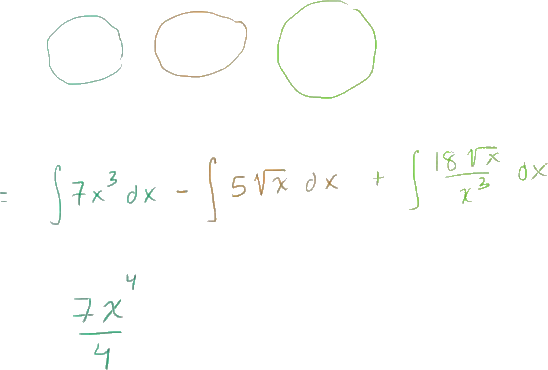 = ∫ 7x³ dx - ∫ 5√x dx + ∫ 18√x/x³ dx
7x⁴/4